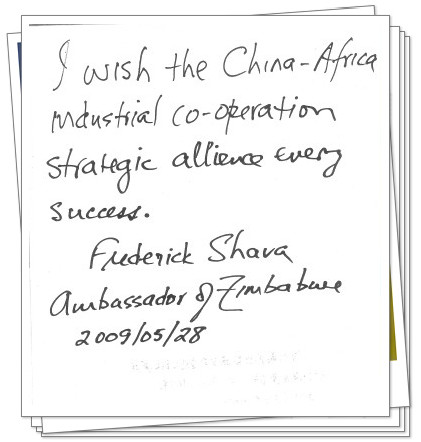 I wish the China-Africa
industrial co-operation
strategic allience every
success.
Frederick Shava
Ambassador of Zimbabwe
2009/05/28